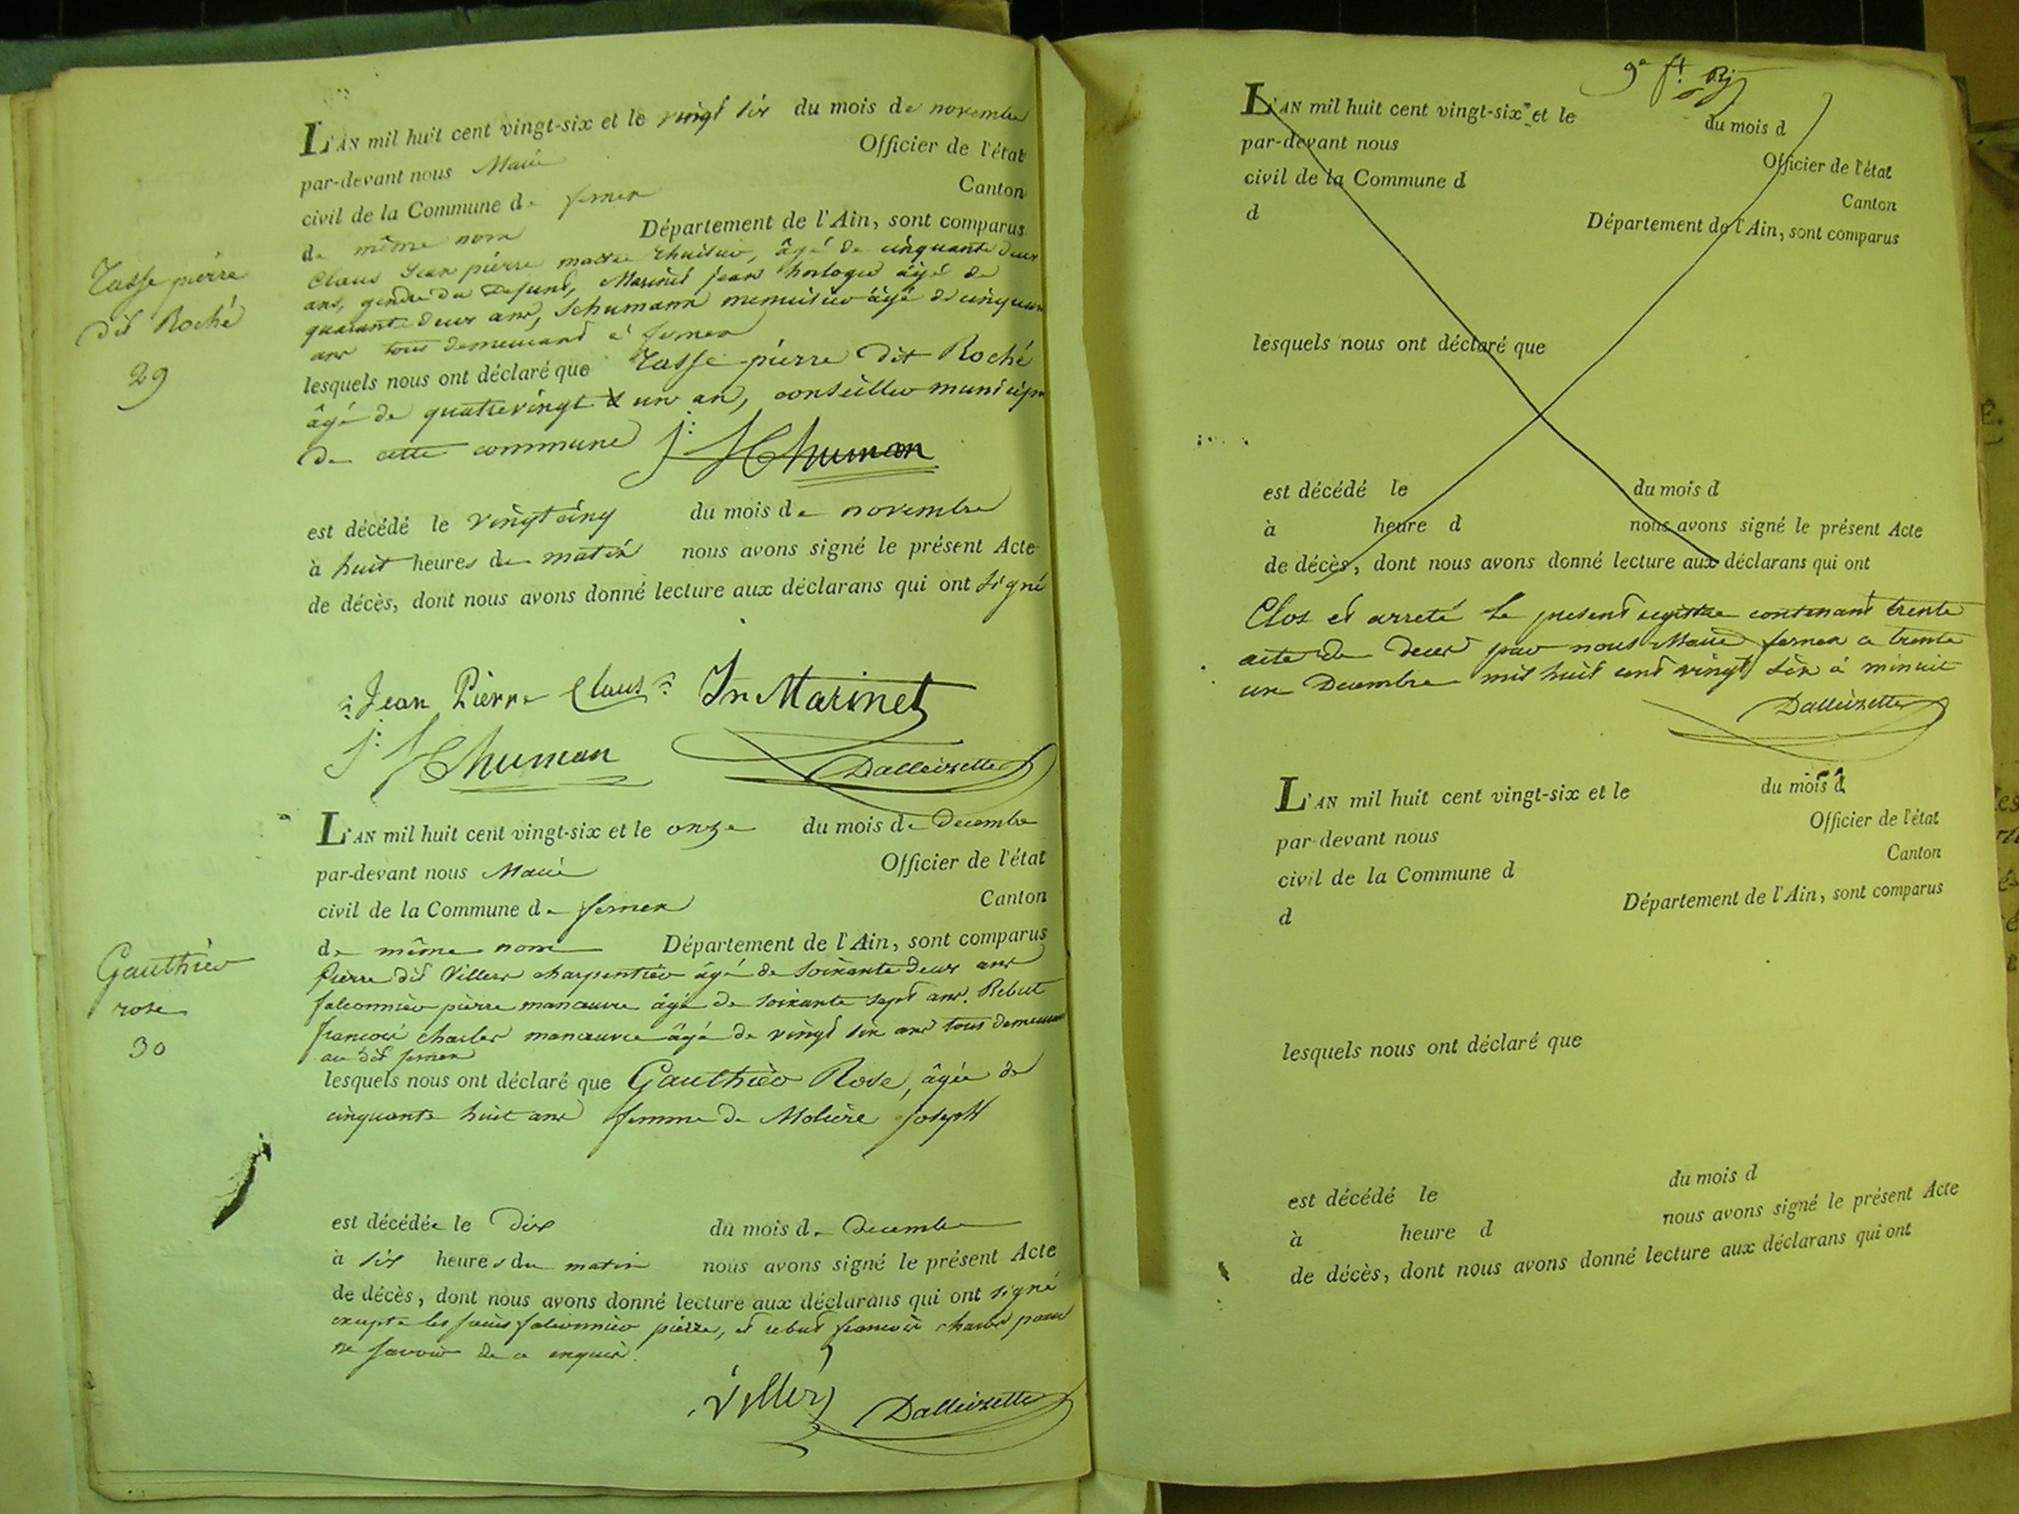 L'AN mil huit cent vingt-six et le vingt six du mois de novembre
par-devant nous Maire Officier de l'état
civil de la Commune de fernex Canton
de même nom Département de l'Ain, sont comparus
Claus Jean pierre âgé de cinquante deux
ans, gendre du defunt, Marinet jean horloger âgé de
quarante deux ans, Schumann menuisier âgé de cinquante
ans tous demeurant à fernex
Tasse pierre
dit Roché
29
lesquels nous ont déclaré que Tasse pierre dit Roché
âgé de quatrevingt & un an, conseiller municip
de cette commune J: Schuman
est décédé le vingt cinq du mois de novembre
à huit heures du matin nous avons signé le présent Acte
de décès, dont nous avons donné lecture aux déclarans qui ont signé
Jean Pierre Claus Jn Marinet
J: Schuman Dalleizette
L'AN mil huit cent vingt-six et le onze du mois de decembre
par-devant nous Maire Officier de l'état
civil de la Commune de fernex Canton
de même nom Département de l'Ain, sont comparus
Pierre dit Villers charpentier âgé de soixante deux ans
falconnier pierre manœuvre âgé de soixante sept ans. Rebut
françois charles manœuvre âgé de vingt six ans tous demeurant
au dit fernex
Gauthier
rose
30
lesquels nous ont déclaré que Gauthier Rose, âgée de
cinquante huit ans femme de Molière joseph
est décédée le dix du mois de decembre
à six heures du matin nous avons signé le présent Acte
de décès, dont nous avons donné lecture aux déclarans qui ont signé
excepté les falconnier pierre, et rebut françois charles pour
ne savoir de ce enquis.
Villers Dalleizette
9e ft.
L'AN mil huit cent vingt-six et le du mois d
par-devant nous Officier de l'état
civil de la Commune d Canton
d Département de l'Ain, sont comparus
lesquels nous ont déclaré que
est décédé le du mois d
à heure d nous avons signé le présent Acte
de décès, dont nous avons donné lecture aux déclarans qui ont
Clos et arreté le present registre contenant trente
acte de deces par nous Maire fernex a trente
un Decembre mil huit cent vingt six à minuit
Dalleizette
L'AN mil huit cent vingt-six et le du mois d
par-devant nous Officier de l'état
civil de la Commune d Canton
d Département de l'Ain, sont comparus
lesquels nous ont déclaré que
est décédé le du mois d
à heure d nous avons signé le présent Acte
de décès, dont nous avons donné lecture aux déclarans qui ont